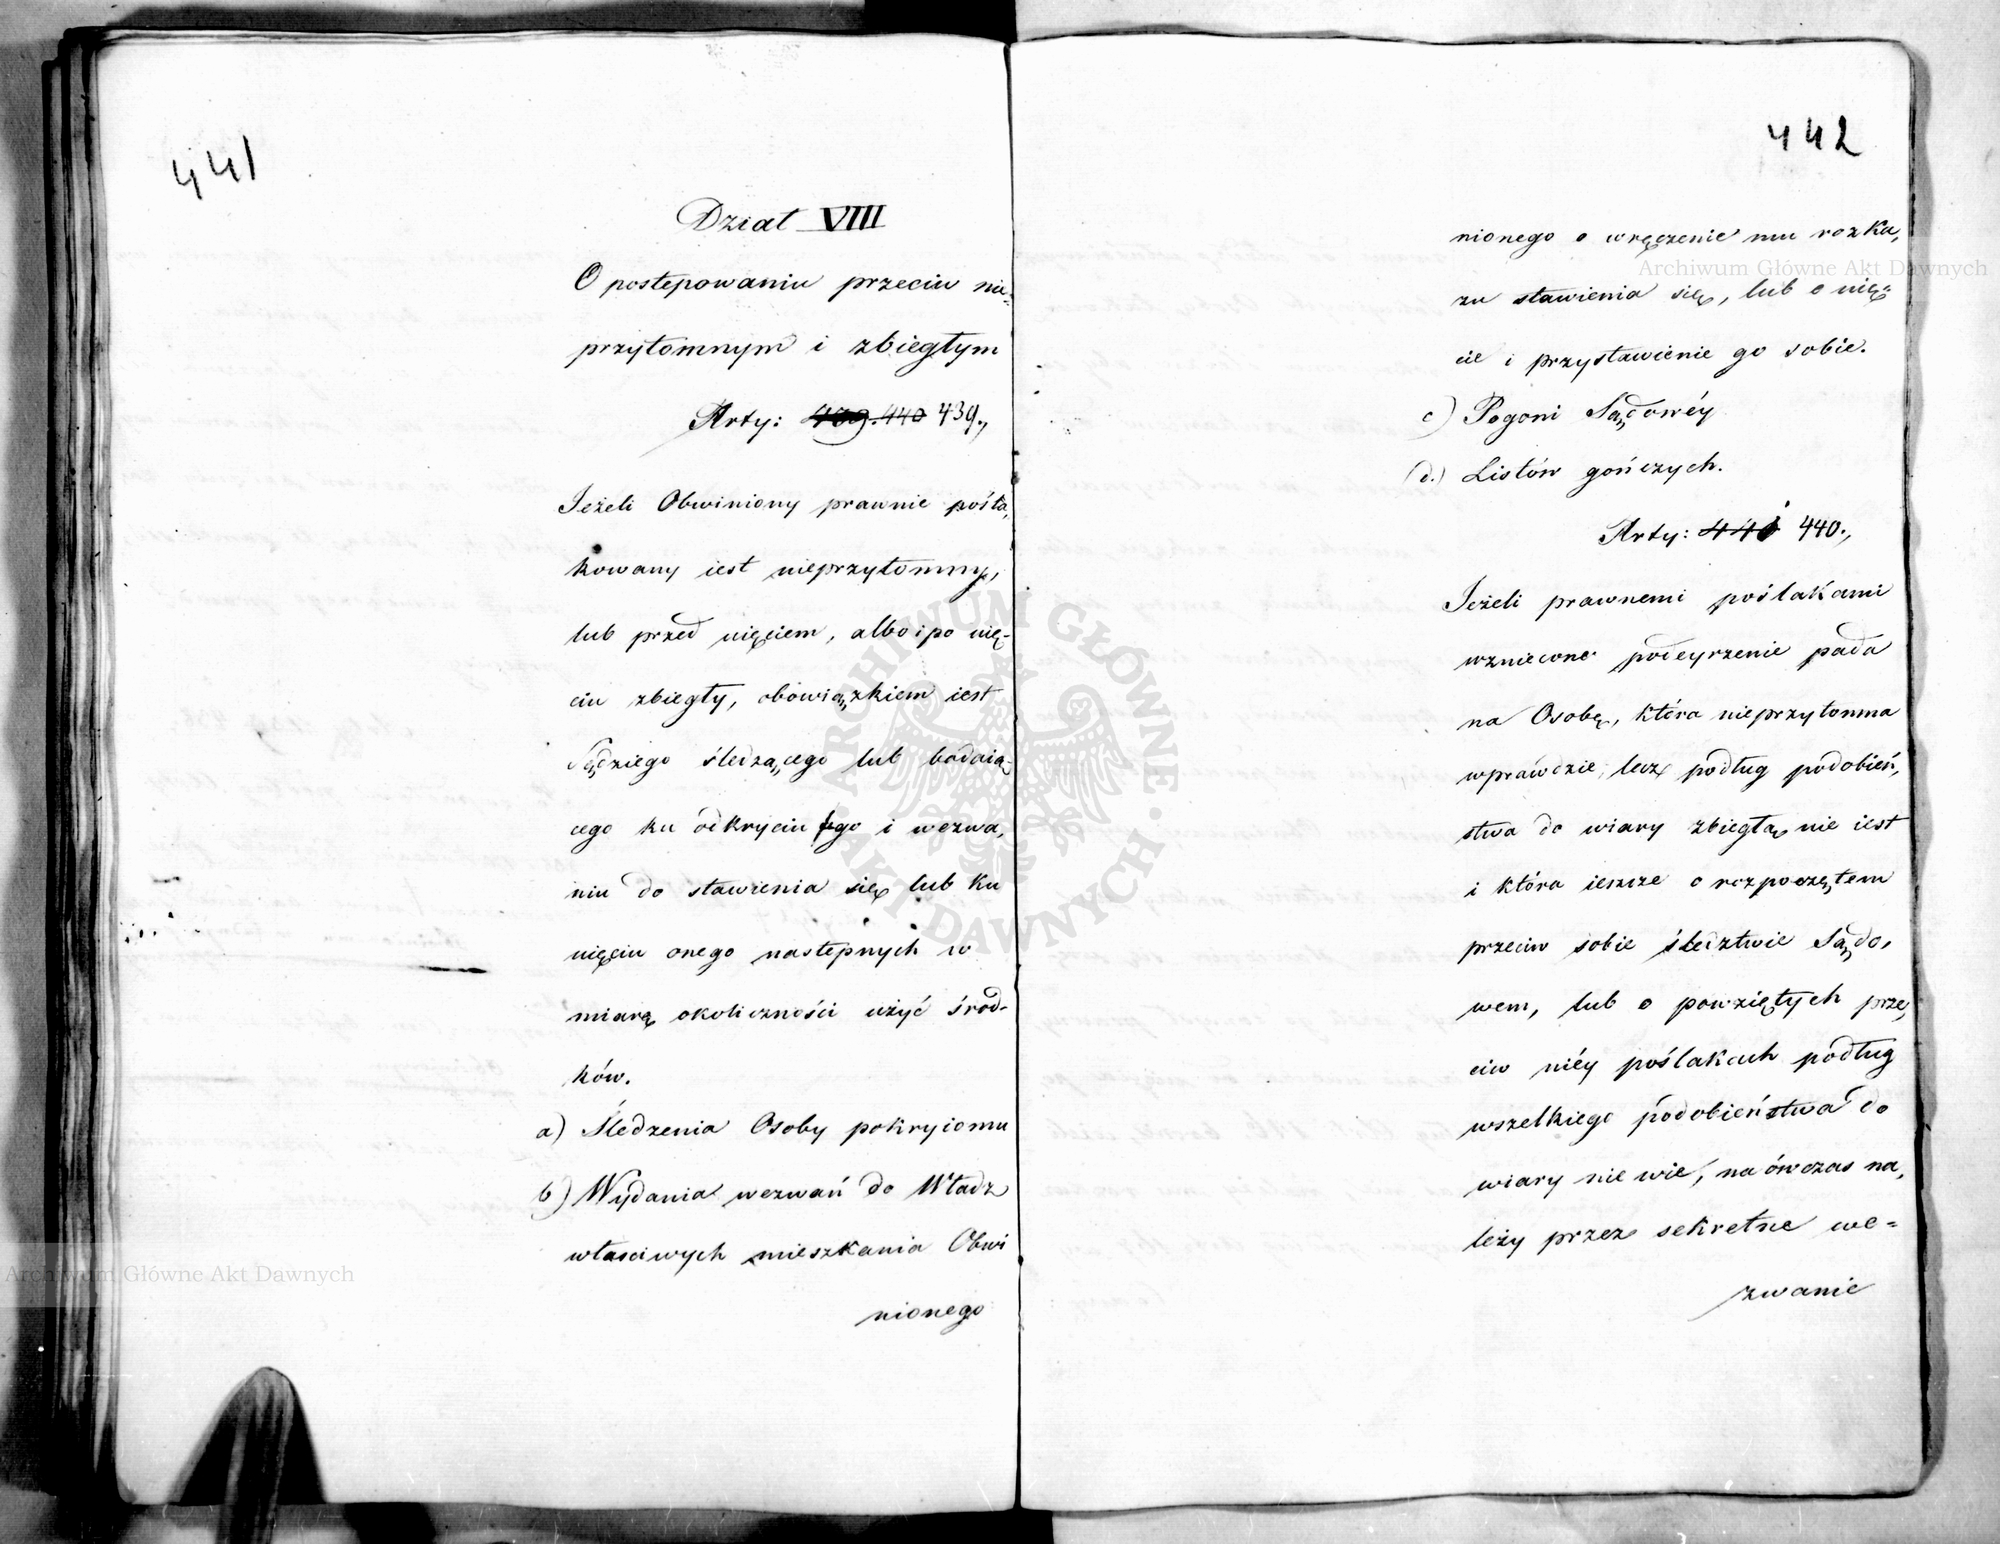 441
Dział VIII
O postępowaniu przeciw nie=
przytomnym i zbiegłym
Arty: 439. 440 439.,
Jeżeli Obwiniony prawnie pośla,
kowany iest nieprzytomny,
lub przed uięciem, albo i po uię-
ciu zbiegły, obowiązkiem iest
Sędziego śledzącego lub badaią-
cego ku odkryciu iego i wezwa,
niu do stawienia się lub ku
uięciu onego następnych w
miarę okoliczności użyć środ-
ków.
a) Śledzenia Osoby pokryiomu
b) Wydania wezwań do Władz
właściwych mieszkania Obwi
nionego
442
nionego o wręczenie mu rozka,
zu stawienia się, lub o uię=
cie i przystawienie go sobie.
c) Pogoni Sądowéy
(d.) Listów gończych.
Arty: 441 440.,
Jeżeli prawnemi poślakami
wzniecone podeyrzenie pada
na Osobę, która nieprzytomna
wprawdzie, lecz podług podobień,
stwa do wiary zbiegłą nie iest
i która ieszcze o rozpoczętem
przeciw sobie śledztwie Sądo,
wem, lub o powziętych prze,
ciw niéy poślakach podług
wszelkiego podobieństwa do
wiary nie wie, na ówczas na,
leży przez sekretne we=
zwanie
Archiwum Główne Akt Dawnych
Archiwum Główne Akt Dawnych
· ARCHIWUM GŁÓWNE · AKT DAWNYCH